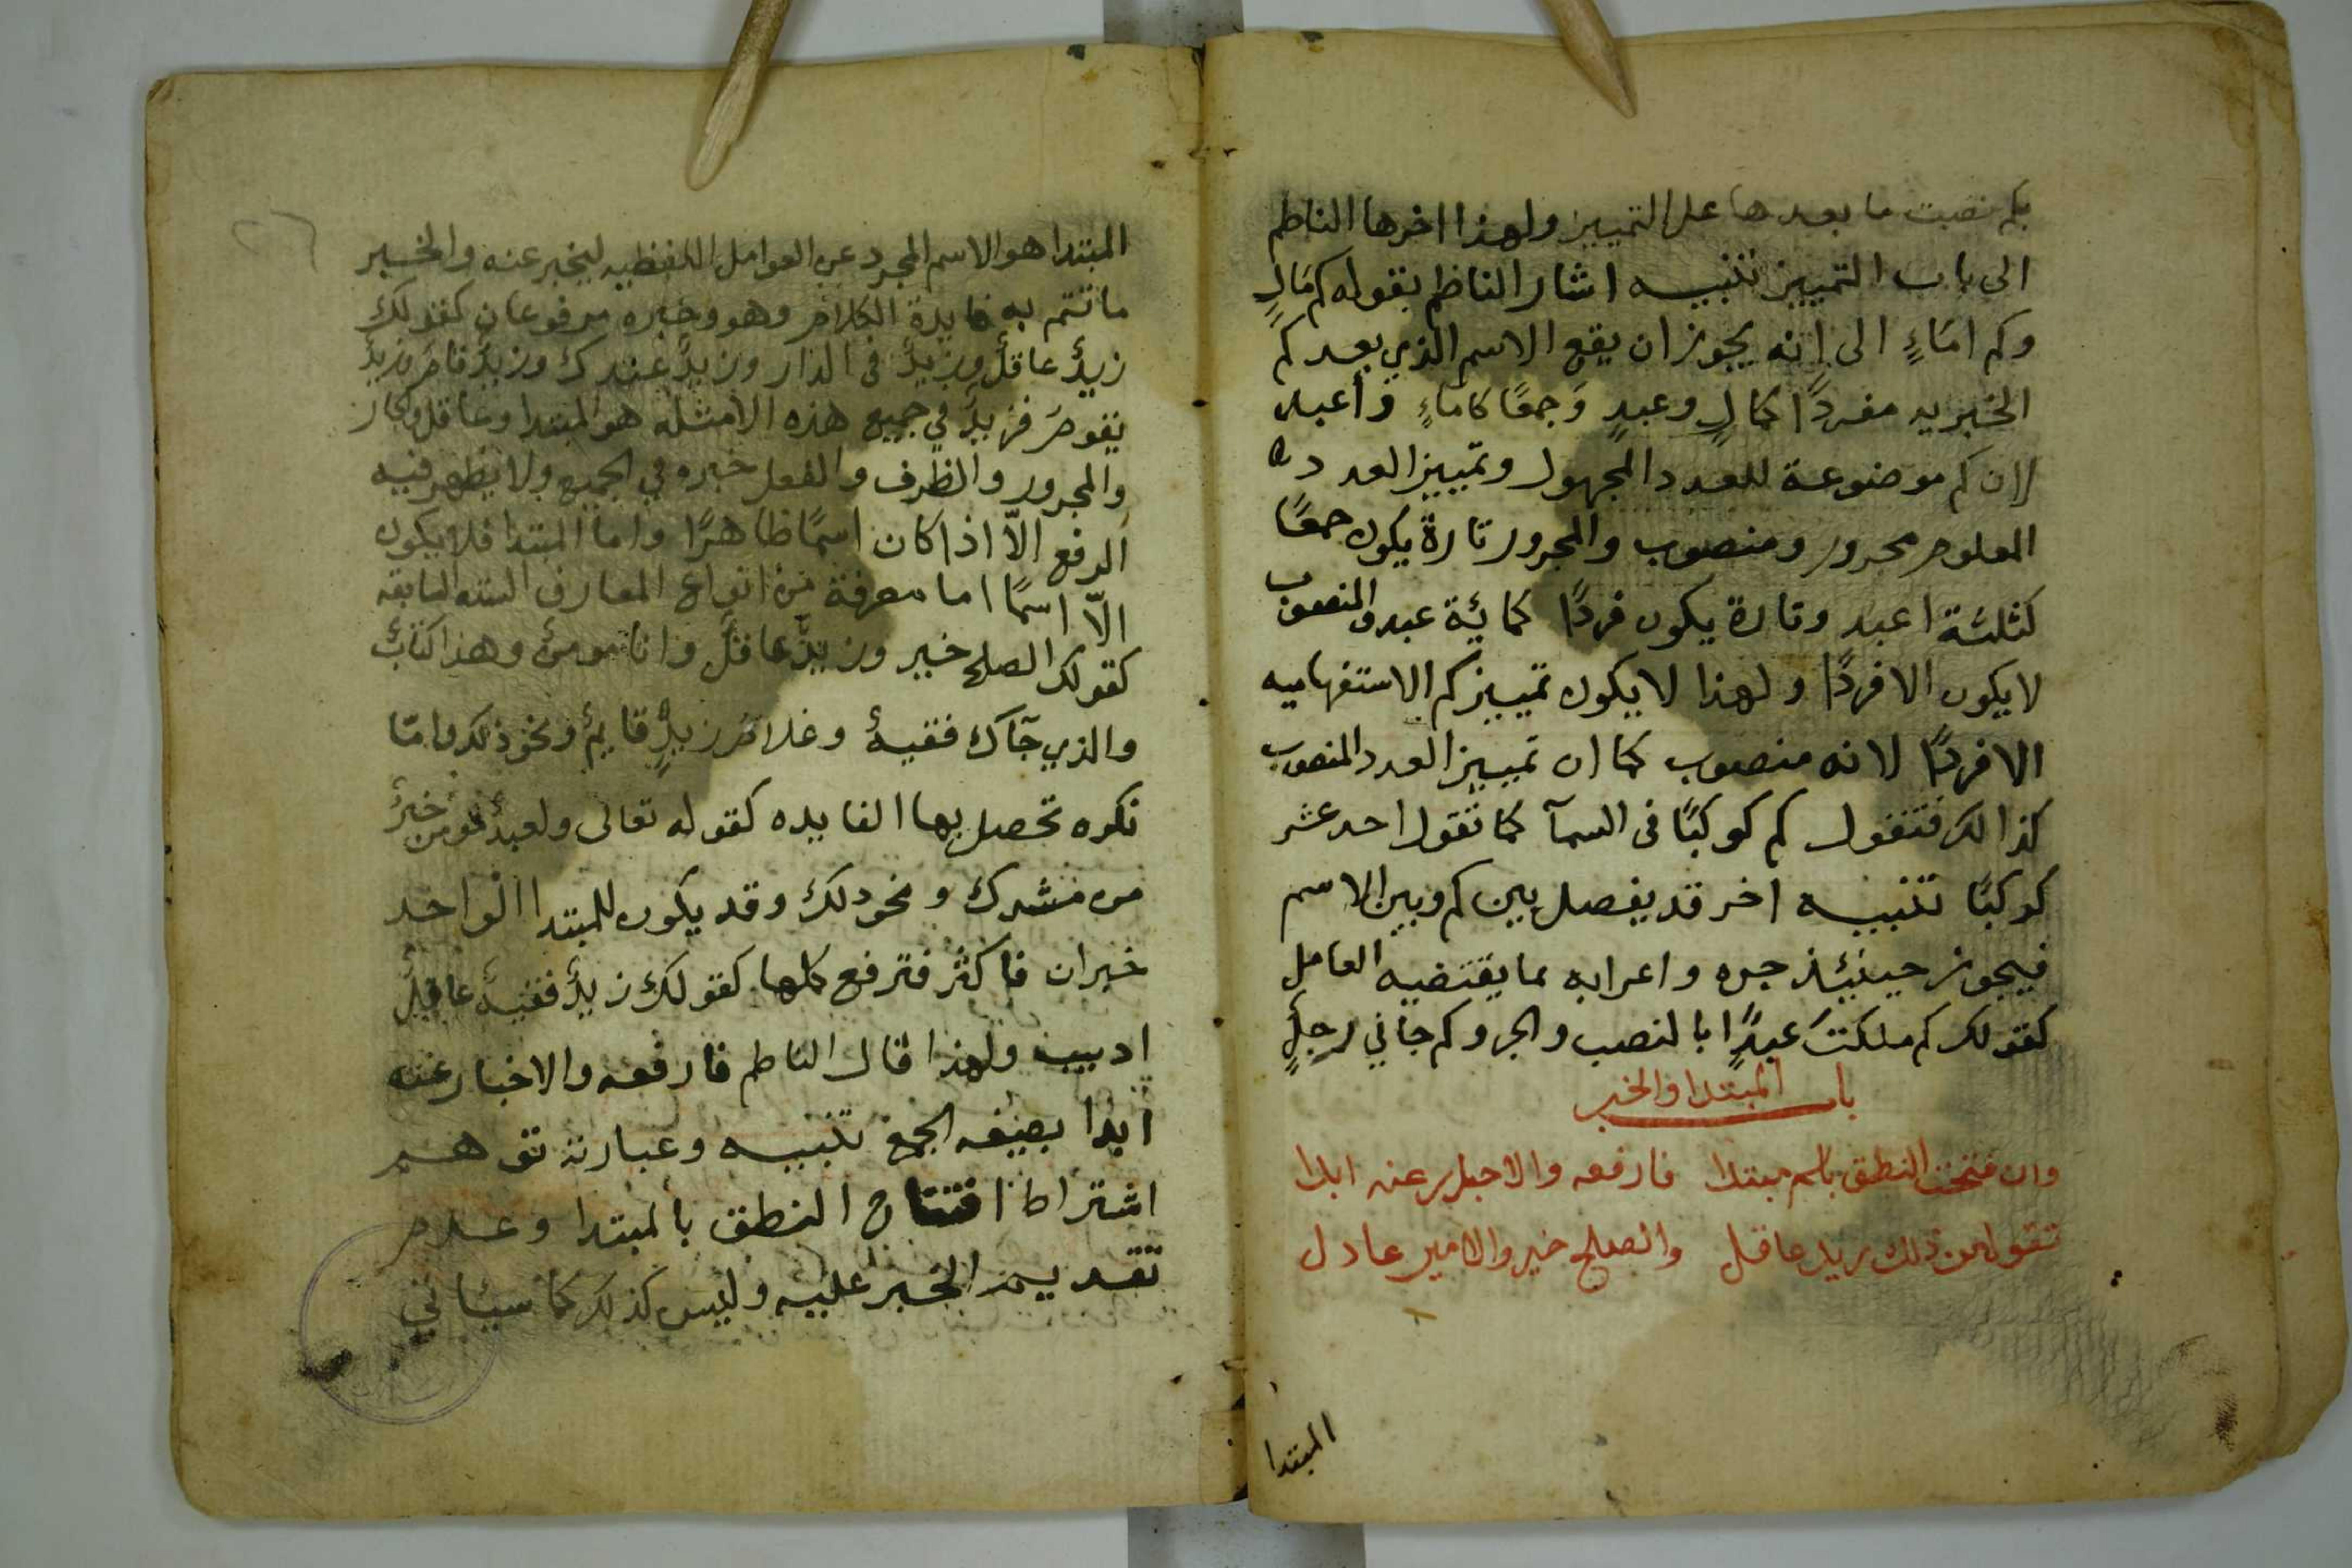 بكم نصبت ما بعدها على التمييز ولهذا اخرها الناظم
الى باب التمييز تنبيه اشار الناظم بقوله كم مَالٍ
وكم امَاءٍ الى انه يجوز ان يقع الاسم الذي بعد كم
الخبريه مفردًا كمالٍ وعبدٍ وَجمعًا كامَاءٍ وَاعبد
لان كم موضوعة للعدد المجهول وتمييز العدد
المعلوم مجرور ومنصوب والمجرور تارةً يكون جمعًا
كثلثة اعبد وتارة يكون فردًا كمائة عبد والمنصوب
لا يكون الا فردًا ولهذا لا يكون تمييز كم الاستفهاميه
الا فردًا لانه منصوب كما ان تمييز العدد المنصوب
كذالك فتقول كم كوكبًا فى السمآ كما تقول احد عشر
كوكبًا تنبيه اخر قد يفصل بين كم وبين الاسم
فيجوز حينئذ جره واعرابه بما يقتضيه العامل
كقولك كم ملكتَ عبدًا بالنصب والجر وكم جاني رجلٍ
باب المبتدا والخبر
وان فتحت النطق باسم مبتدا فارفعه والاخبار عنه ابدا
تقول من ذلك زيد عاقل والصلح خير والامير عادل
المبتدا
٢٦
المبتدا هو الاسم المجرد عن العوامل اللفظيه ليخبر عنه والخبر
ما تتم به فايدة الكلام وهو وخبره مرفوعان كقولك
زيدٌ عاقلٌ وزيدٌ فى الدار وزيدٌ عندك وزيدٌ قامَ وزيدٌ
يقومُ فزيدٌ في جميع هذه الامثله هو المبتدا وعاقل والجار
والمجرور والظرف والفعل خبره في الجميع ولا يظهر فيه
الرفع الّا اذا كان اسمًا ظاهرًا واما المبتدا فلا يكون
الّا اسمًا اما معرفة من انواع المعارف الستة السابقه
كقولك الصلح خير وزيدٌ عاقلٌ وانا مومنٌ وهذا كتابٌ
والذي جآك فقيهٌ وغلامُ زيدٍ قايمٌ ونحو ذلك وامّا
نكره تحصل بها الفايده كقوله تعالى ولعبدٌ مومن خيرٌ
من مشرك ونحو ذلك وقد يكون للمبتدا الواحد
خبران فاكثر فترفع كلها كقولك زيدٌ فقيهٌ عاقلٌ
اديب ولهذا قال الناظم فارفعه والاخبار عنه
ابدا بصيغه الجمع تنبيه وعبارته توهم
اشتراط افتتاح النطق بالمبتدا وعدم
تقديم الخبر عليه وليس كذلك كما سياتي